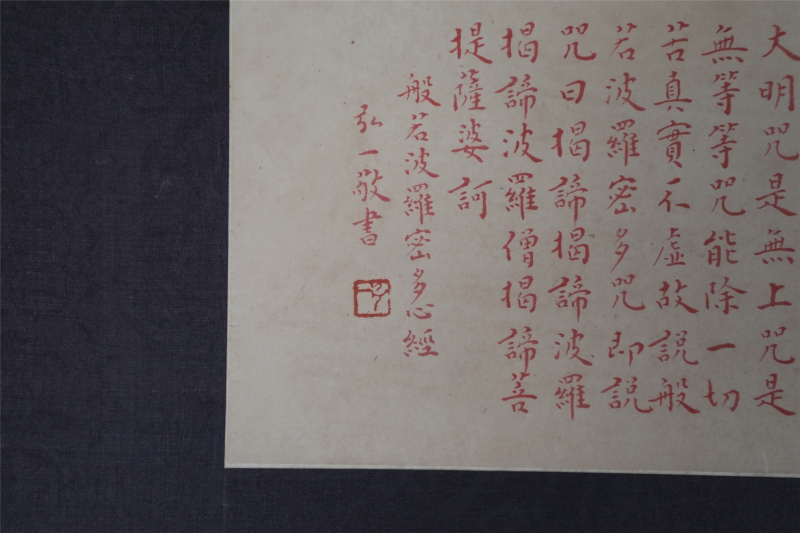 大明咒是無上咒是
無等等咒能除一切
苦真實不虛故説般
若波羅密多咒即説
咒曰揭諦揭諦波羅
揭諦波羅僧揭諦菩
提薩婆訶
般若波羅密多心經
弘一敬書